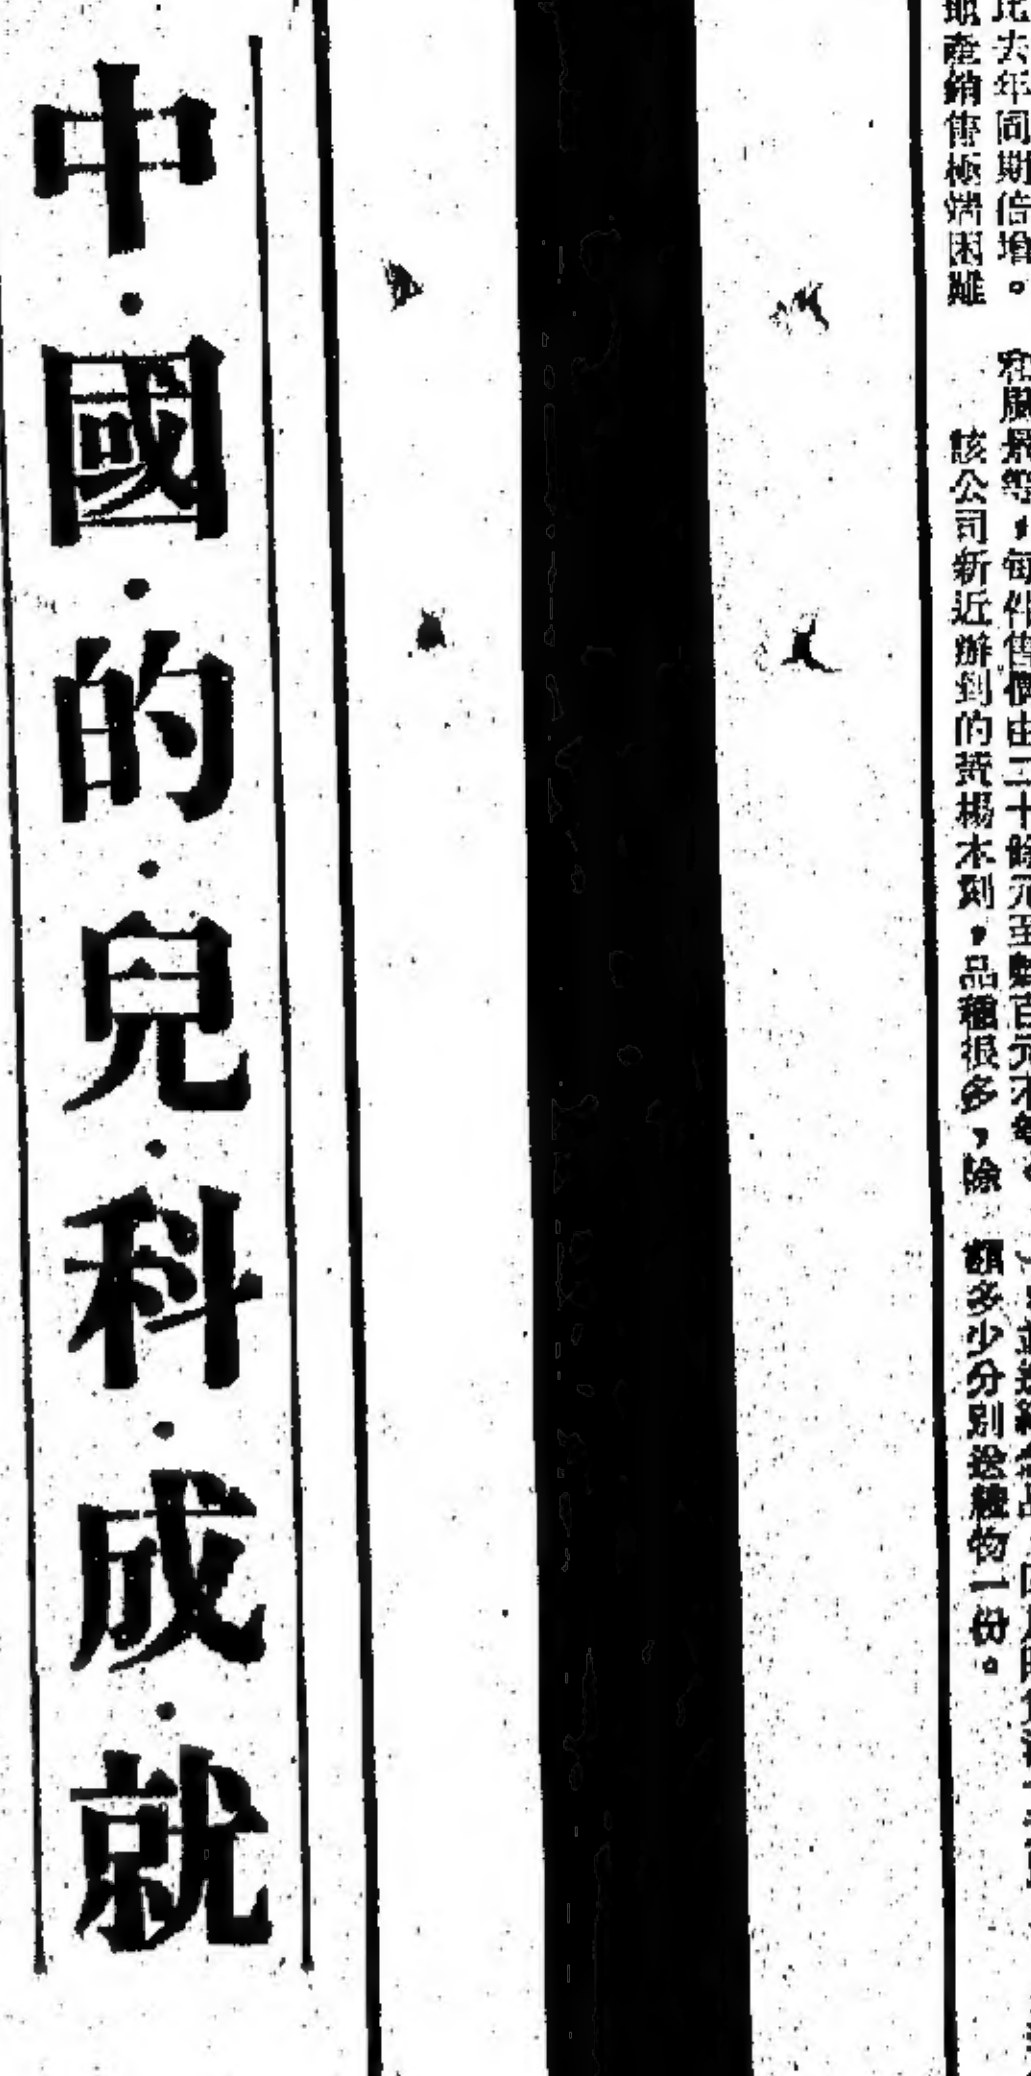 比去年同期倍增。
地產銷售極端困難
和風景等，每件售價由二十餘元至數百元不等。
該公司新近辦到的黃楊木刻，品種很多，除
額多少分別送禮物一份。
中·國·的·兒·科·成·就